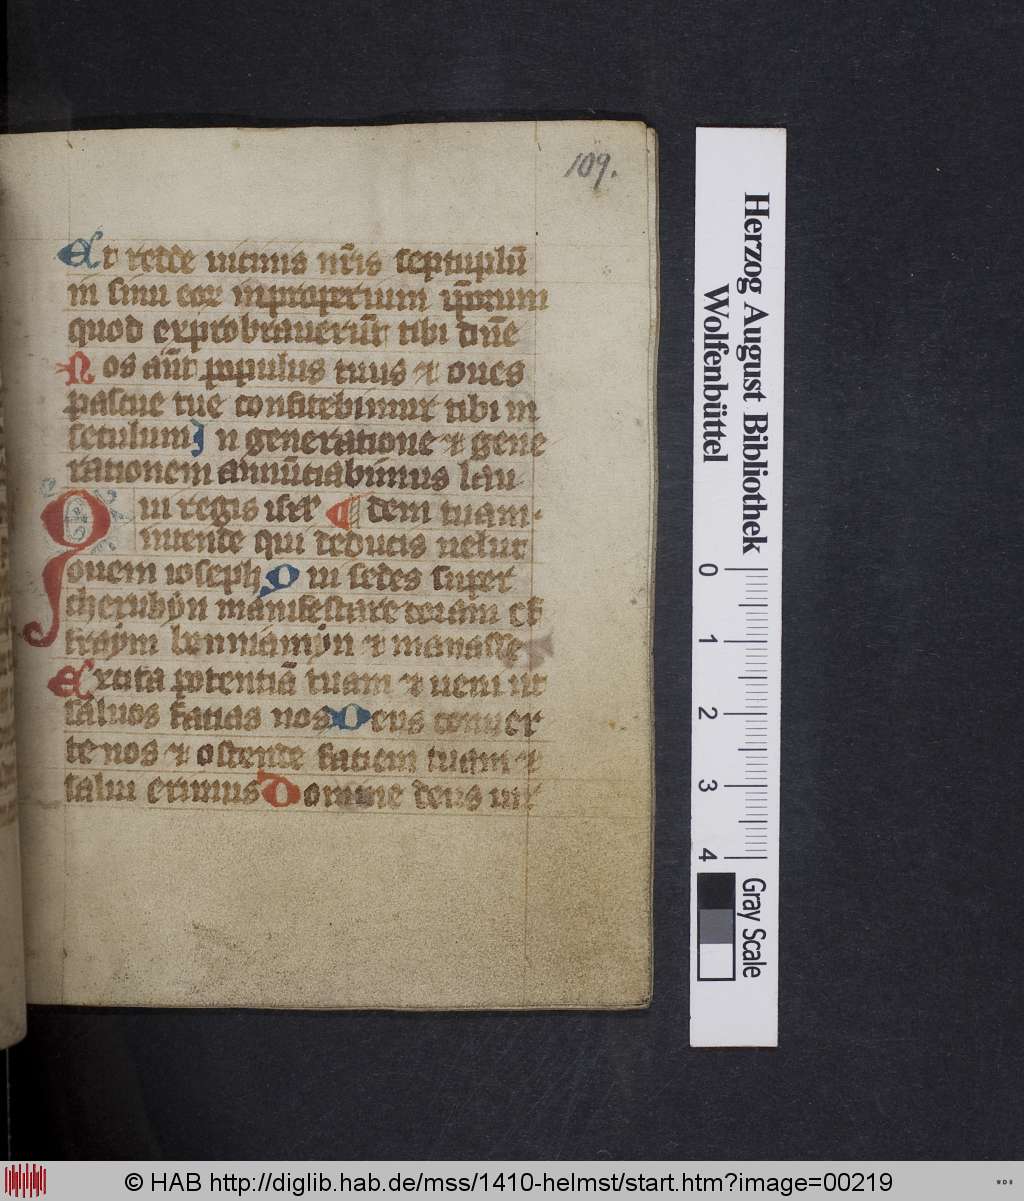 109.
Et redde uicinis nr̄is septuplū
in sinu eor inproperium ip̄orum
quod exprobrauerūt tibi dn̄e
Nos aūt populus tuus et oues
pascue tue confitebimur tibi in
seculum In generatione et gene
rationem annūciabimus lau
dem tuam
Qui regis isrl
intende qui deducis uelut
ouem ioseph Qui sedes super
cherubyn manifestare coram ef
fraym beniamyn et manasse
Excita potentiā tuam et ueni ut
saluos facias nos Deus conuer
te nos et ostende faciem tuam et
salui erimus Domine deus uir
Herzog August Bibliothek
Wolfenbüttel
0 1 2 3 4
Gray Scale
© HAB http://diglib.hab.de/mss/1410-helmst/start.htm?image=00219